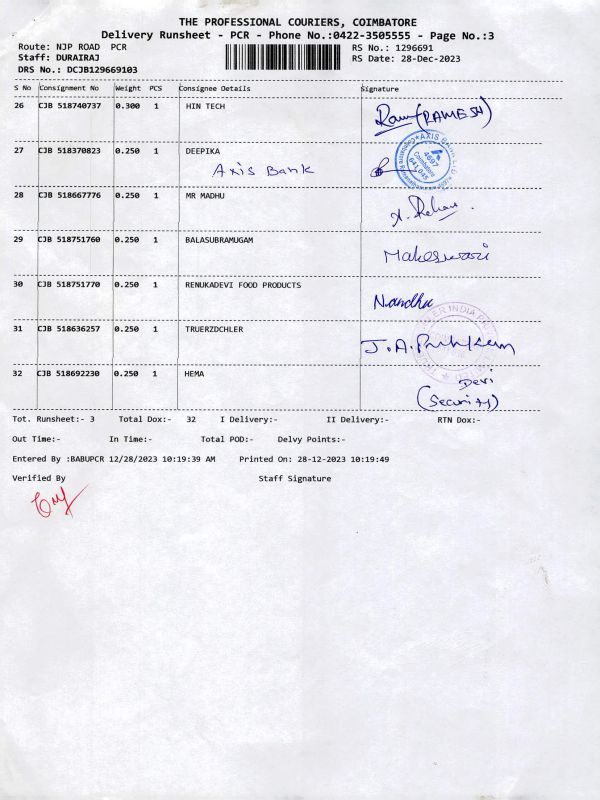 THE PROFESSIONAL COURIERS, COIMBATORE
Delivery Runsheet - PCR - Phone No.:0422-3505555 - Page No.:3
Route: NJP ROAD PCR RS No.: 1296691
Staff: DURAIRAJ RS Date: 28-Dec-2023
DRS No.: DCJB129669103
S No Consignment No Weight PCS Consignee Details Signature
26 CJB 518740737 0.300 1 HIN TECH
(RAMESH)
27 CJB 518370823 0.250 1 DEEPIKA
Axis Bank
AXIS BANK
4697
Coimbatore
641 045
28 CJB 518667776 0.250 1 MR MADHU
29 CJB 518751760 0.250 1 BALASUBRAMUGAM
Makeswari
30 CJB 518751770 0.250 1 RENUKADEVI FOOD PRODUCTS
Nandhu
31 CJB 518636257 0.250 1 TRUERZDCHLER
INDIA
J.A.
32 CJB 518692230 0.250 1 HEMA
Devi
(Security)
Tot. Runsheet:- 3 Total Dox:- 32 I Delivery:- II Delivery:- RTN Dox:-
Out Time:- In Time:- Total POD:- Delvy Points:-
Entered By :BABUPCR 12/28/2023 10:19:39 AM Printed On: 28-12-2023 10:19:49
Verified By Staff Signature